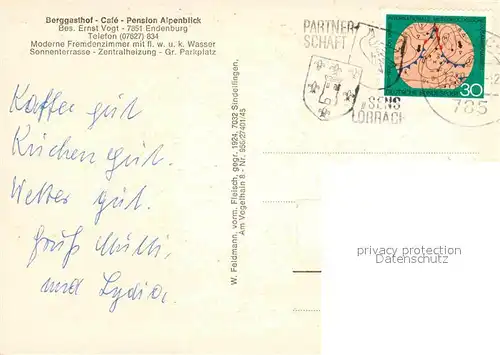 Berggasthof - Café - Pension Alpenblick
Bes. Ernst Vogt - 7851 Endenburg
Telefon (07627) 834
Moderne Fremdenzimmer mit fl. w. u. k. Wasser
Sonnenterrasse - Zentralheizung - Gr. Parkplatz
Kaffee gut
Kuchen gut.
Wetter gut.
Gruß Mutti,
und Lydia,
W. Feldmann, vorm. Fleisch, gegr. 1924, 7032 Sindelfingen,
Am Vogelhain 8 - Nr. 956/27401/45
PARTNER-
SCHAFT
SENS
LÖRRACH
785
DEUTSCHE BUNDESPOST
30
privacy protection
Datenschutz